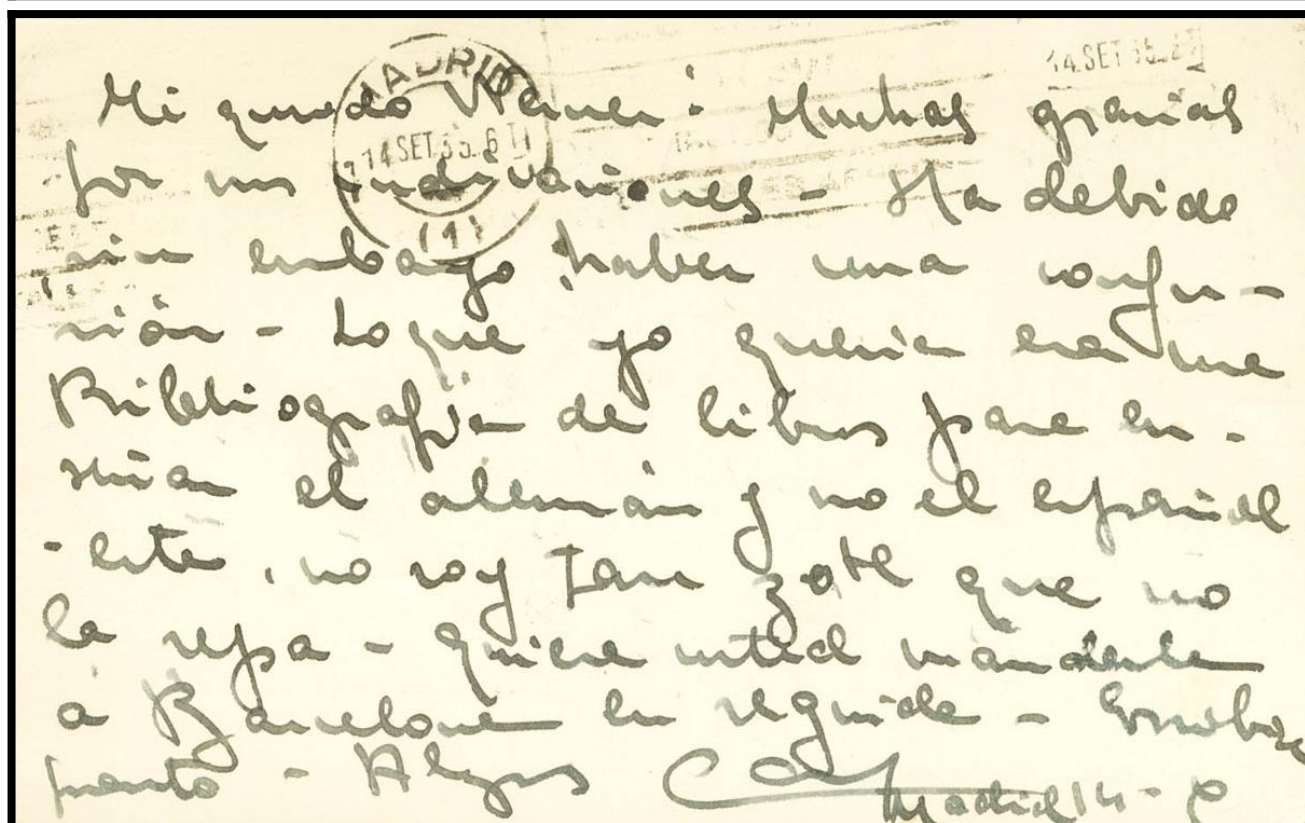 MADRID
14 SET 35. 6 T
(1)
14 SET 35. 6 T
Mi querido Werner: Muchas gracias
por sus indicaciones - Ha debido
sin embargo haber una confu-
sión - Lo que yo quería era una
Bibliografía de libros para en-
señar el alemán y no el español
- este, no soy tan zote que no
lo sepa - Quiere usted mandarla
a Barcelona en seguida - Escribiré
pronto - Abzos
Madrid 14 -